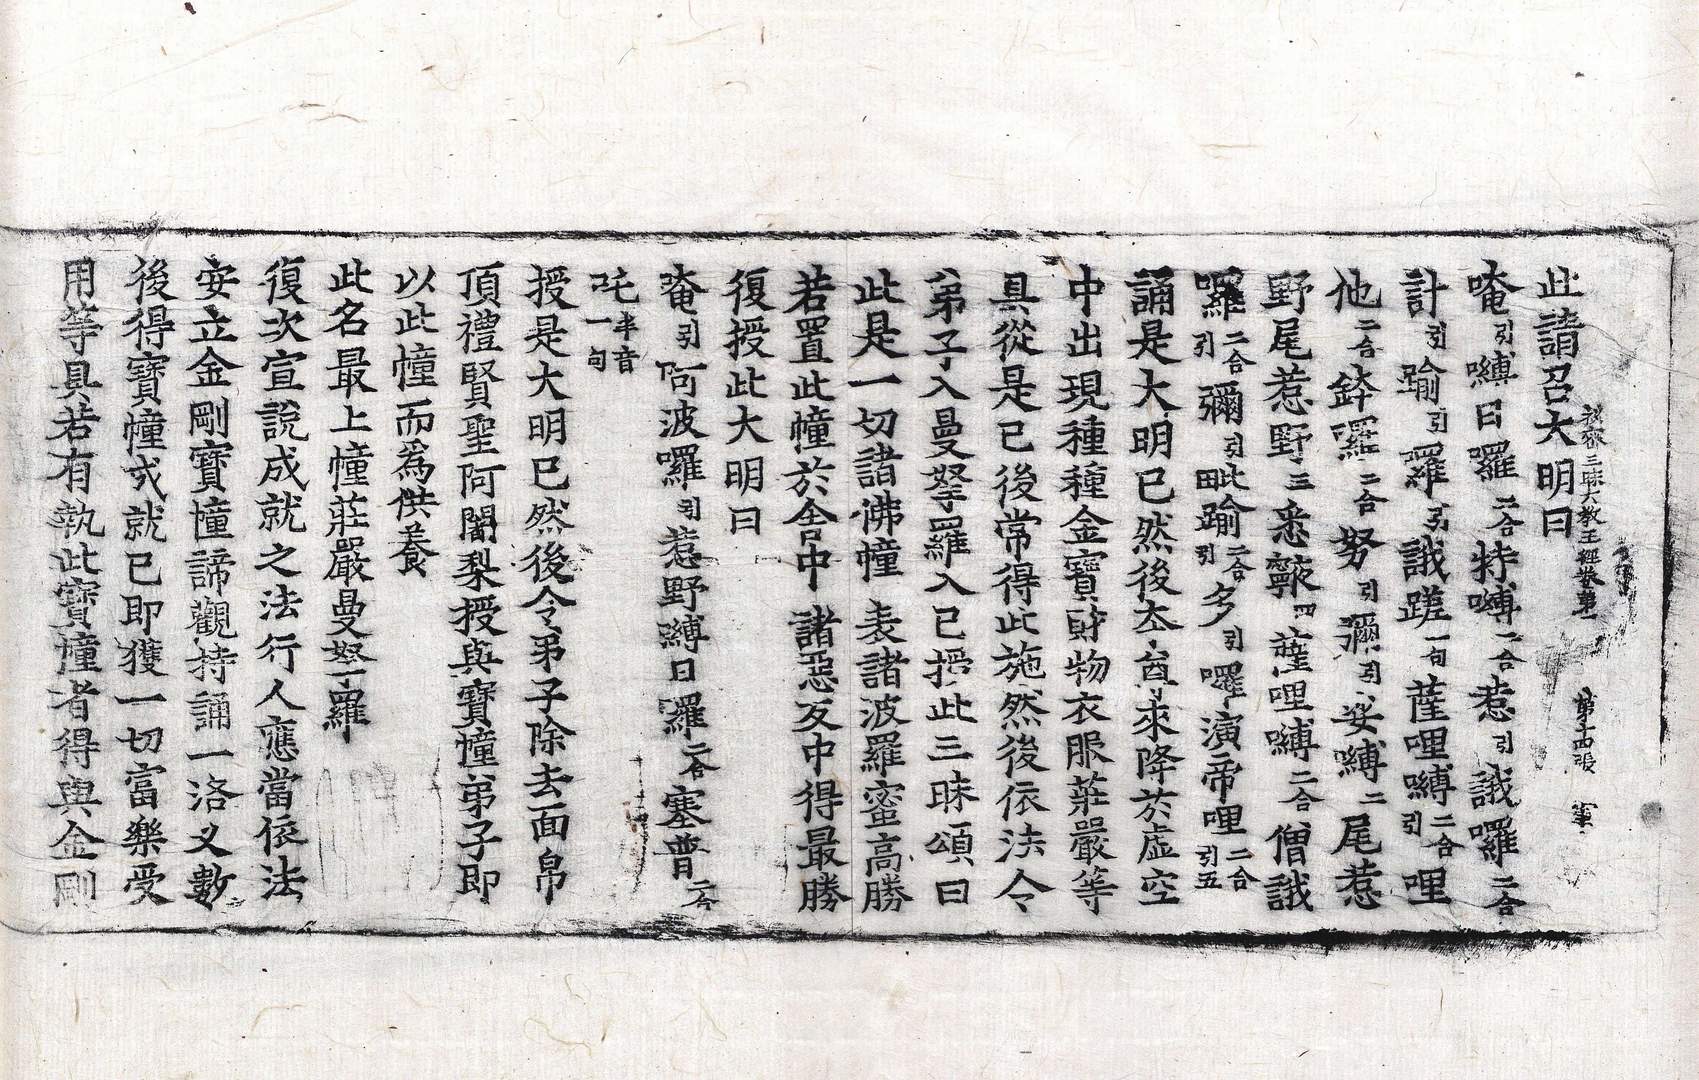 此請召大明曰
秘密三昧大教王經卷第一 第十四張 軍
唵引嚩日囉二合特嚩二合惹引誐囉二合
計引踰引羅引誐蹉一句薩哩嚩二合引哩
他二合鉢囉二合努引彌引娑嚩二尾惹
野尾惹野三悉𩕳四薩哩嚩二合僧誐
囉二合引彌引毗踰二合引多引囉演帝哩二合引五
誦是大明已然後本尊來降於虛空
中出現種種金寶財物衣服莊嚴等
具從是已後常得此施然後依法令
弟子入曼拏羅入已授此三昧頌曰
此是一切諸佛幢 表諸波羅蜜高勝
若置此幢於舍中 諸惡友中得最勝
復授此大明曰
唵引阿波囉引惹野嚩日囉二合塞普二合
吒半音一句
授是大明已然後令弟子除去面帛
頂禮賢聖阿闍梨授與寶幢弟子即
以此幢而爲供養
此名最上幢莊嚴曼拏羅
復次宣說成就之法行人應當依法
安立金剛寶幢諦觀持誦一洛叉數
後得寶幢成就已即獲一切富樂受
用等具若有執此寶幢者得與金剛